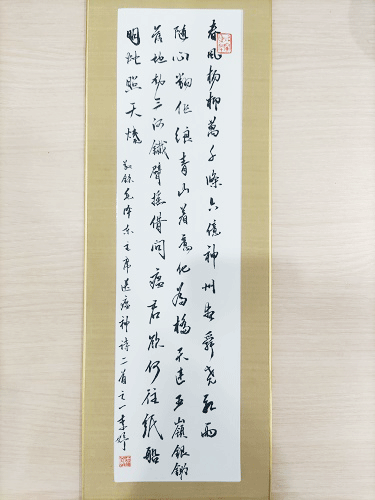 春風楊柳萬千條六億神州尽舜尧紅雨
随心翻作浪青山着意化為橋天連五嶺銀鋤
落地動三河鐵臂摇借問瘟君欲何往紙船
明烛照天燒 敬錄毛泽东主席送瘟神詩二首之一 李